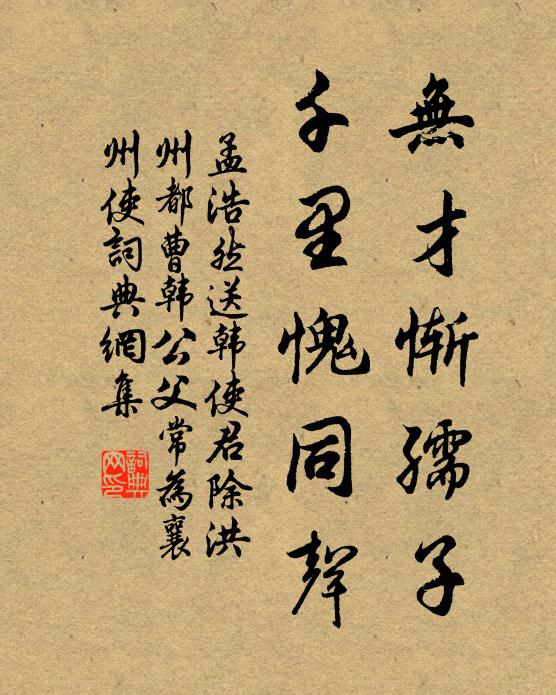 無才慚孺子
千里愧同聲
孟浩然送韓使君除洪
州都曹韓公父常為襄
州使詞典網集
詞典
网印